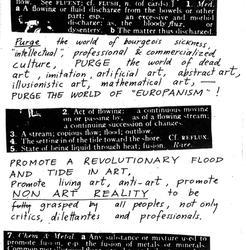 flow. See FLUENT; cf. FLUSH, n. (of cards).] 1. Med.
a A flowing or fluid discharge from the bowels or other
part; esp., an excessive and morbid
discharge; as, the bloody flux, or
dysentery. b The matter thus discharged.
Purge the world of bourgeois sickness,
"intellectual", professional & commercialized
culture, PURGE the world of dead
art, imitation, artificial art, abstract art,
illusionistic art, mathematical art, —
PURGE THE WORLD OF "EUROPANISM"!
2. Act of flowing: a continuous moving
on or passing by, as of a flowing stream;
a continuing succession of changes.
3. A stream; copious flow; flood; outflow.
4. The setting in of the tide toward the shore. Cf. REFLUX.
5. State of being liquid through heat; fusion. Rare.
PROMOTE A REVOLUTIONARY FLOOD
AND TIDE IN ART,
Promote living art, anti-art, promote
NON ART REALITY to be
fully grasped by all peoples, not only
critics, dilettantes and professionals.
7. Chem & Metal. a Any substance or mixture used to
promote fusion, esp. the fusion of metals or minerals.